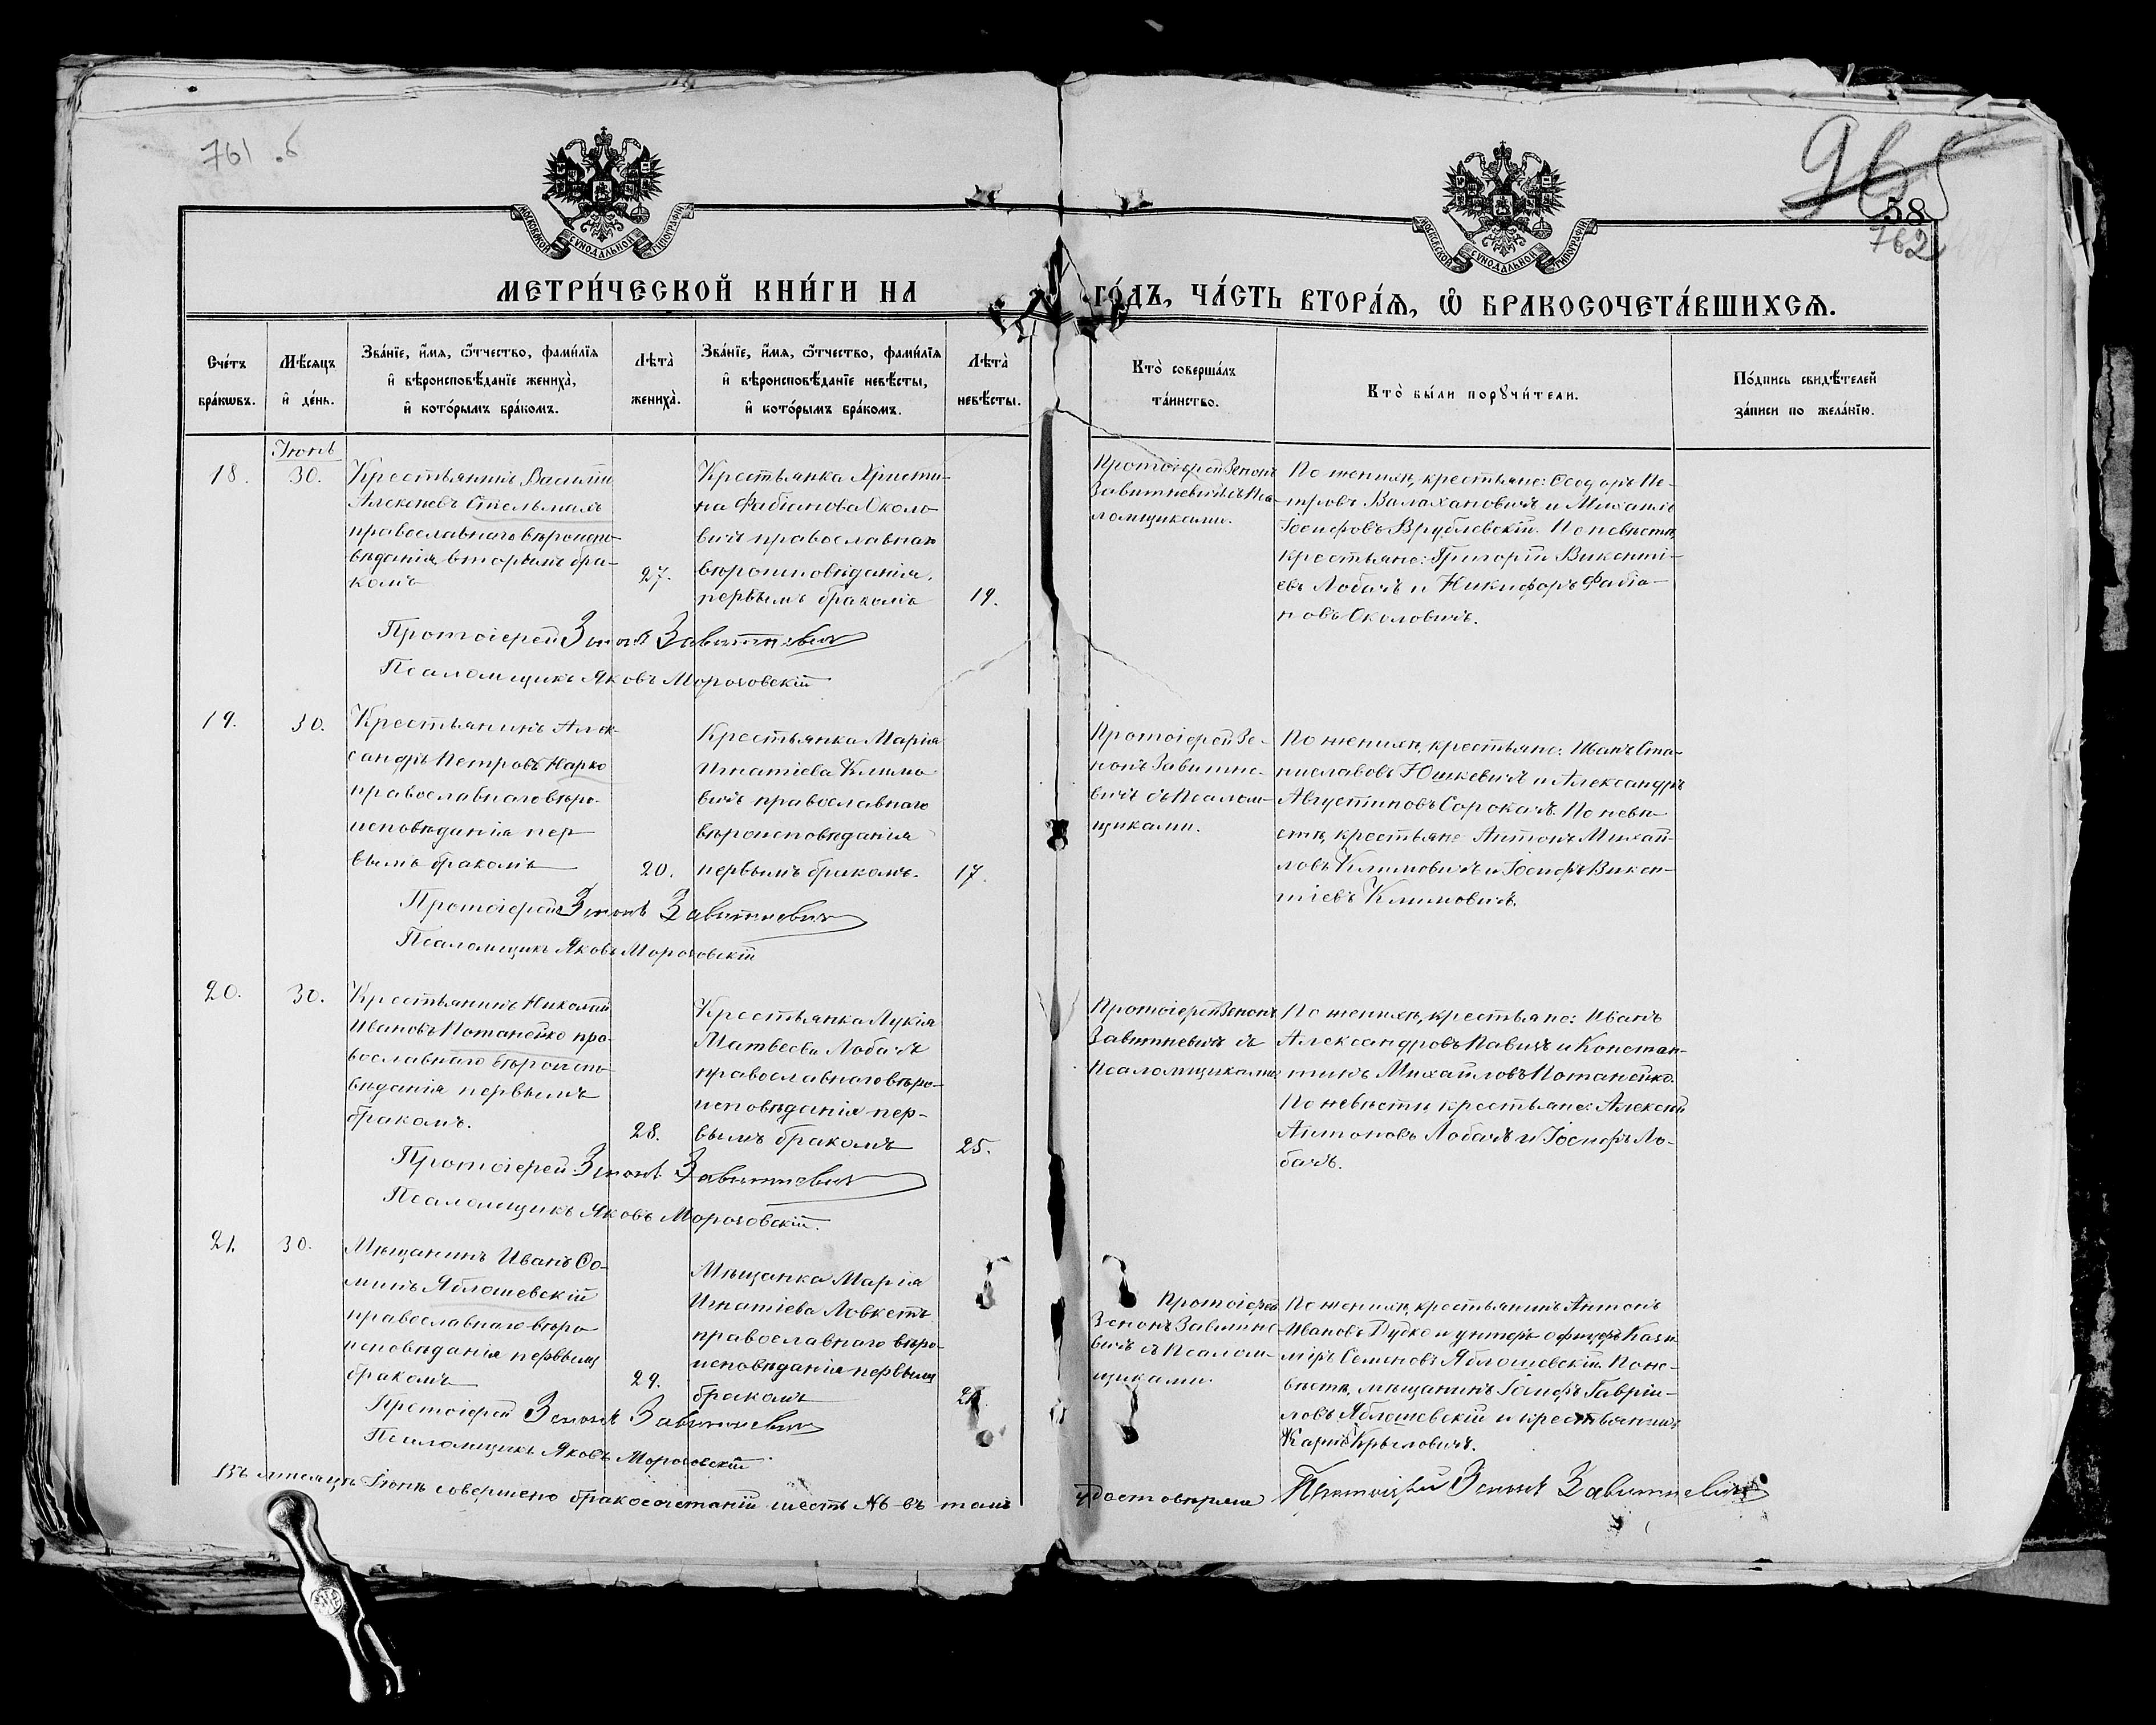 761 об
965
58
762
МОСКОВСКОЙ СѴНОДАЛЬНОЙ ТИПОГРАФІИ
МОСКОВСКОЙ СѴНОДАЛЬНОЙ ТИПОГРАФІИ
МЕТРИ́ЧЕСКОЙ КНИ́ГИ НА
ГО́ДЪ, ЧА́СТЬ ВТОРА́Ѧ, Ѽ БРАКОСОЧЕТА́ВШИХСѦ.
Сче́тъ
бра́кѡвъ.
Мѣ́сяцъ
и҆ де́нь.
Зва́нїе, и҆́мя, ѻ҆́тчество, фами́лїя
и҆ вѣроисповѣ́данїе жениха̀,
и҆ кото́рымъ бра́комъ.
Лѣта̀
жениха̀.
Зва́нїе, и҆́мя, ѻ҆́тчество, фами́лїя
и҆ вѣроисповѣ́данїе невѣ́сты,
и҆ кото́рымъ бра́комъ.
Лѣта̀
невѣ́сты.
Кто̀ соверша́лъ
та́инство.
Кто̀ бы́ли порꙋчи́тели.
По́дпись свидѣ́телей
за́писи по жела́нїю.
Іюнь
18.
30.
Крестьянинъ Василій
Алексѣевъ Стельмахъ
православнаго вѣроиспо-
вѣданія, вторымъ бра-
комъ
27.
Крестьянка Христи-
на Фабіанова Около-
вичъ православнаго
вѣроисповѣданія,
первымъ бракомъ
19.
Протоіерей Зенонъ
Завитневичъ съ Пса-
ломщиками.
По женихѣ, крестьяне: Ѳеодоръ Пе-
тровъ Валахановичъ и Михаилъ
Іосифовъ Врублевскій. По невѣстѣ,
крестьяне: Григорій Викенті-
евъ Лобачъ и Никифоръ Фабіа-
новъ Околовичъ.
Протоіерей Зенонъ Завитневичъ
Псаломщикъ Яковъ Мороховскій
19.
30.
Крестьянинъ Алек-
сандръ Петровъ Нарко
православнаго вѣро-
исповѣданія пер-
вымъ бракомъ
20.
Крестьянка Марія
Игнатіева Климо-
вичъ православнаго
вѣроисповѣданія
первымъ бракомъ.
17.
Протоіерей Зе-
нонъ Завитне-
вичъ съ Псалом-
щиками.
По женихѣ, крестьяне: Иванъ Ста-
ниславовъ Юшкевичъ и Александръ
Августиновъ Сорокачъ. По невѣ-
стѣ, крестьяне Антонъ Михай-
ловъ Климовичъ и Іосифъ Викен-
тіевъ Климовичъ
Протоіерей Зенонъ Завитневичъ
Псаломщикъ Яковъ Мороховскій
20.
30.
Крестьянинъ Николай
Ивановъ Потанейко пра-
вославнаго вѣроиспо-
вѣданія первымъ
бракомъ.
28.
Крестьянка Лукія
Матвеева Лобачъ
православнаго вѣро-
исповѣданія пер-
вымъ бракомъ
25.
Протоіерей Зенонъ
Завитневичъ съ
Псаломщиками
По женихѣ, крестьяне: Иванъ
Александровъ Павичъ и Констан-
тинъ Михайловъ Потанейко.
По невѣстѣ крестьяне: Алексѣй
Антоновъ Лобачъ и Іосифъ Ло-
бачъ.
Протоіерей Зенонъ Завитневичъ
Псаломщикъ Яковъ Мороховскій.
21.
30.
Мѣщанинъ Иванъ Ѳо-
минъ Яблошевскій
православнаго вѣро-
исповѣданія первымъ
бракомъ
29.
Мѣщанка Марія
Игнатіева Ловкетъ
православнаго вѣро-
исповѣданія первымъ
бракомъ
Протоіерей
Зенонъ Завитне-
вичъ съ Псалом-
щиками.
По женихѣ, крестьянинъ Антонъ
Ивановъ Дудко и унтеръ офицеръ Кази-
міръ Семеновъ Яблошевскій. По не-
вѣстѣ, мѣщанинъ Іосифъ Гаврии-
ловъ Яблошевскій и крестьянинъ
Карпъ Крыловичъ.
Протоіерей Зенонъ Завитневичъ
Псаломщикъ Яковъ Мороховскій
Въ мѣсяцѣ Іюнѣ совершено бракосочетаній шесть № въ томъ
удостовѣряю Протоіерей Зенонъ Завитневичъ